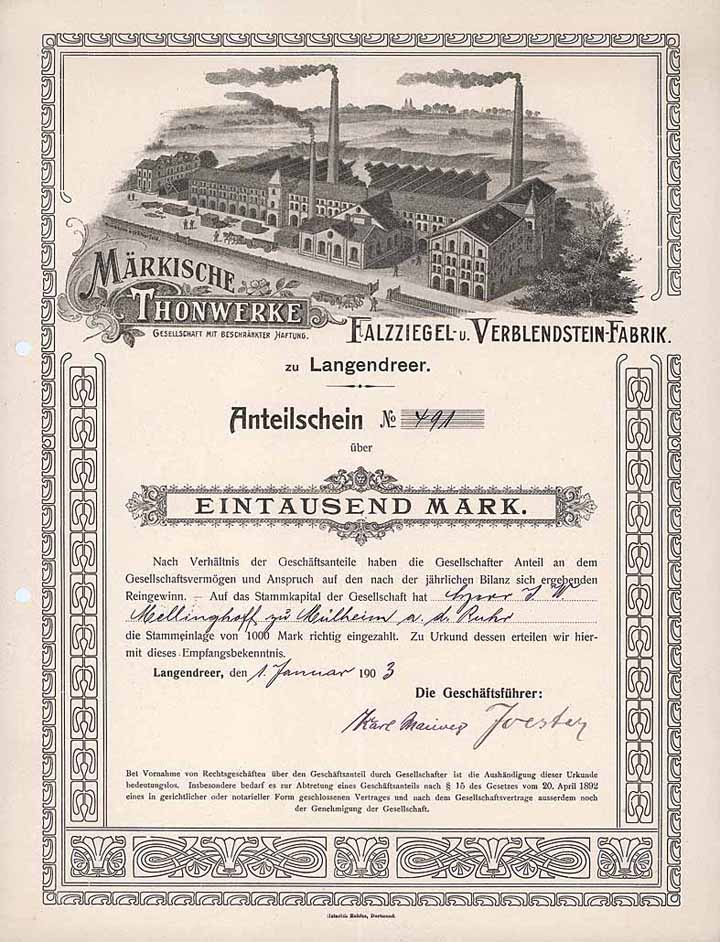 MÄRKISCHE
THONWERKE
GESELLSCHAFT MIT BESCHRÄNKTER HAFTUNG.
FALZZIEGEL- U. VERBLENDSTEIN-FABRIK.
zu Langendreer.
Anteilschein № 491
über
EINTAUSEND MARK.
Nach Verhältnis der Geschäftsanteile haben die Gesellschafter Anteil an dem
Gesellschaftsvermögen und Anspruch auf den nach der jährlichen Bilanz sich ergebenden
Reingewinn. — Auf das Stammkapital der Gesellschaft hat Herr J. W.
Mellinghoff zu Mülheim a. d. Ruhr
die Stammeinlage von 1000 Mark richtig eingezahlt. Zu Urkund dessen erteilen wir hier-
mit dieses Empfangsbekenntnis.
Langendreer, den 1. Januar 1903
Die Geschäftsführer:
Karl
Bei Vornahme von Rechtsgeschäften über den Geschäftsanteil durch Gesellschafter ist die Aushändigung dieser Urkunde
bedeutungslos. Insbesondere bedarf es zur Abtretung eines Geschäftsanteils nach § 15 des Gesetzes vom 20. April 1892
eines in gerichtlicher oder notarieller Form geschlossenen Vertrages und nach dem Gesellschaftsvertrage ausserdem noch
der Genehmigung der Gesellschaft.
Dortmund.